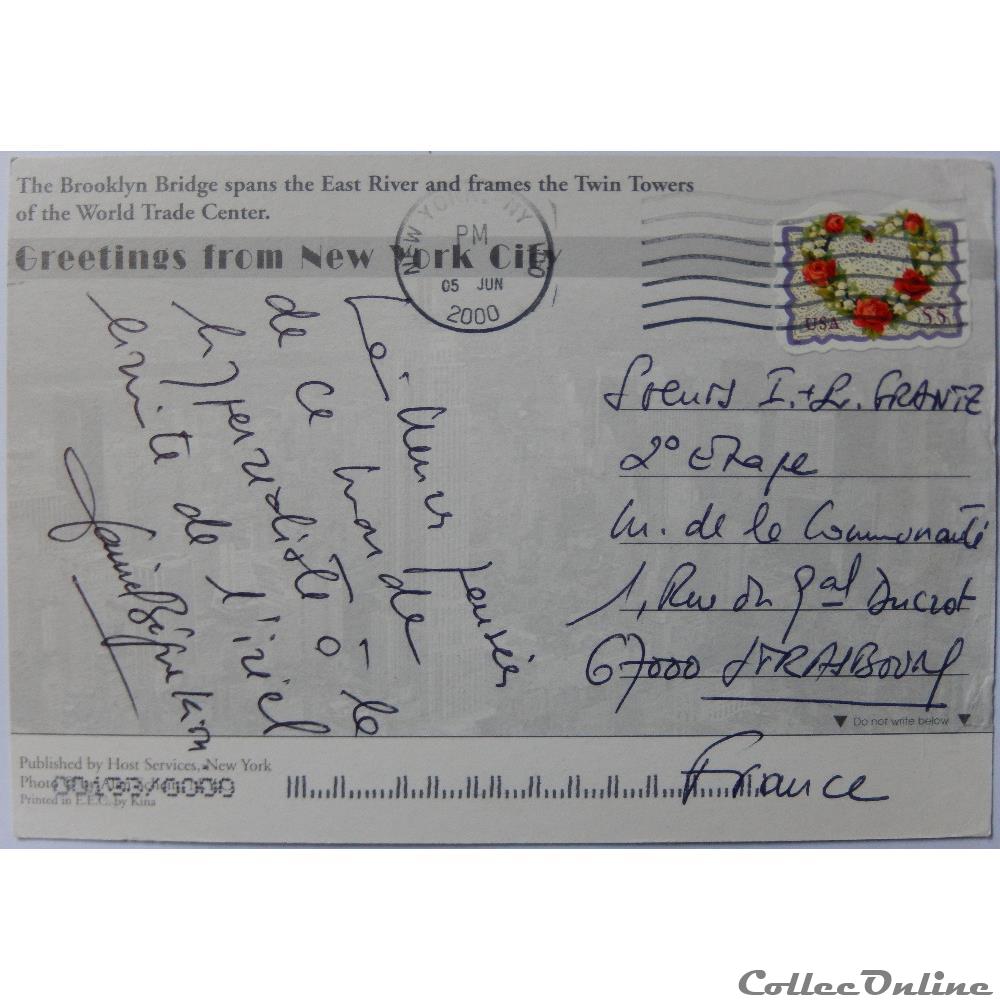 The Brooklyn Bridge spans the East River and frames the Twin Towers
of the World Trade Center.
Greetings from New York City
NEW YORK, NY
PM
05 JUN
2000
USA 55
de ce monde
hyperréaliste à la
limite de l'irréel
2° Etape
M. de la Communauté
1, Rue du Gal Ducrot
67000 STRASBOURG
Do not write below
France
Published by Host Services, New York
Printed in E.E.C. by Kina
CollecOnline